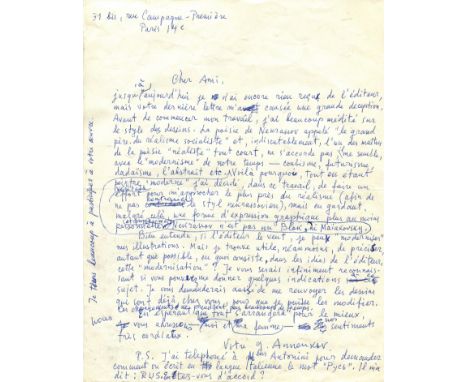 31 bis, rue Campagne-Première
Paris 14e
Cher Ami,
jusqu'à aujourd'hui je n'ai encore rien reçu de l'éditeur,
mais votre dernière lettre m'a causée une grande déception.
Avant de commencer mon travail, j'ai beaucoup médité sur
le style des dessins. La poésie de Nekrassov appelé "le grand
père du réalisme socialiste" et, indiscutablement, l'un des maîtres
de la poésie "réaliste" tout court, ne s'accorde pas, me semble,
avec le "modernisme" de notre temps — cubisme, futurisme,
dadaïsme, l'abstrait etc. Voilà pourquoi, tout en étant
peintre "moderne" j'ai décidé, dans ce travail, de faire un
effort pour m'approcher le plus près du réalisme (afin de
ne pas le style nekrassovien), mais en gardant,
malgré cela, une forme d'expression graphique plus ou moins
personnelle. Nekrassov n'est pas un Blok, ni Maïakovsky.
Bien entendu, si l'éditeur le veut, je peux "moderniser"
mes illustrations. Mais je trouve utile, néanmoins, de préciser
autant que possible, en quoi consiste, dans les idées de l'éditeur,
cette "modernisation"? Je vous serais infiniment reconnais-
sant si vous pouvez me donner quelques indications à ce
sujet. Je vous demanderais aussi de me renvoyer les dessins
qui sont déjà chez vous, pour que je puisse les modifier.
En espérant que tout s'arrangera pour le mieux,
nous vous adressons, moi et ma femme — nos sentiments
très cordiaux.
Votre G. Annenkov
P.S. J'ai téléphoné à Antonini pour demander
comment on écrit en langue italienne le mot "Русь". Il m'a
dit: RUS. Êtes-vous d'accord?
Je tiens beaucoup à participer à votre œuvre.